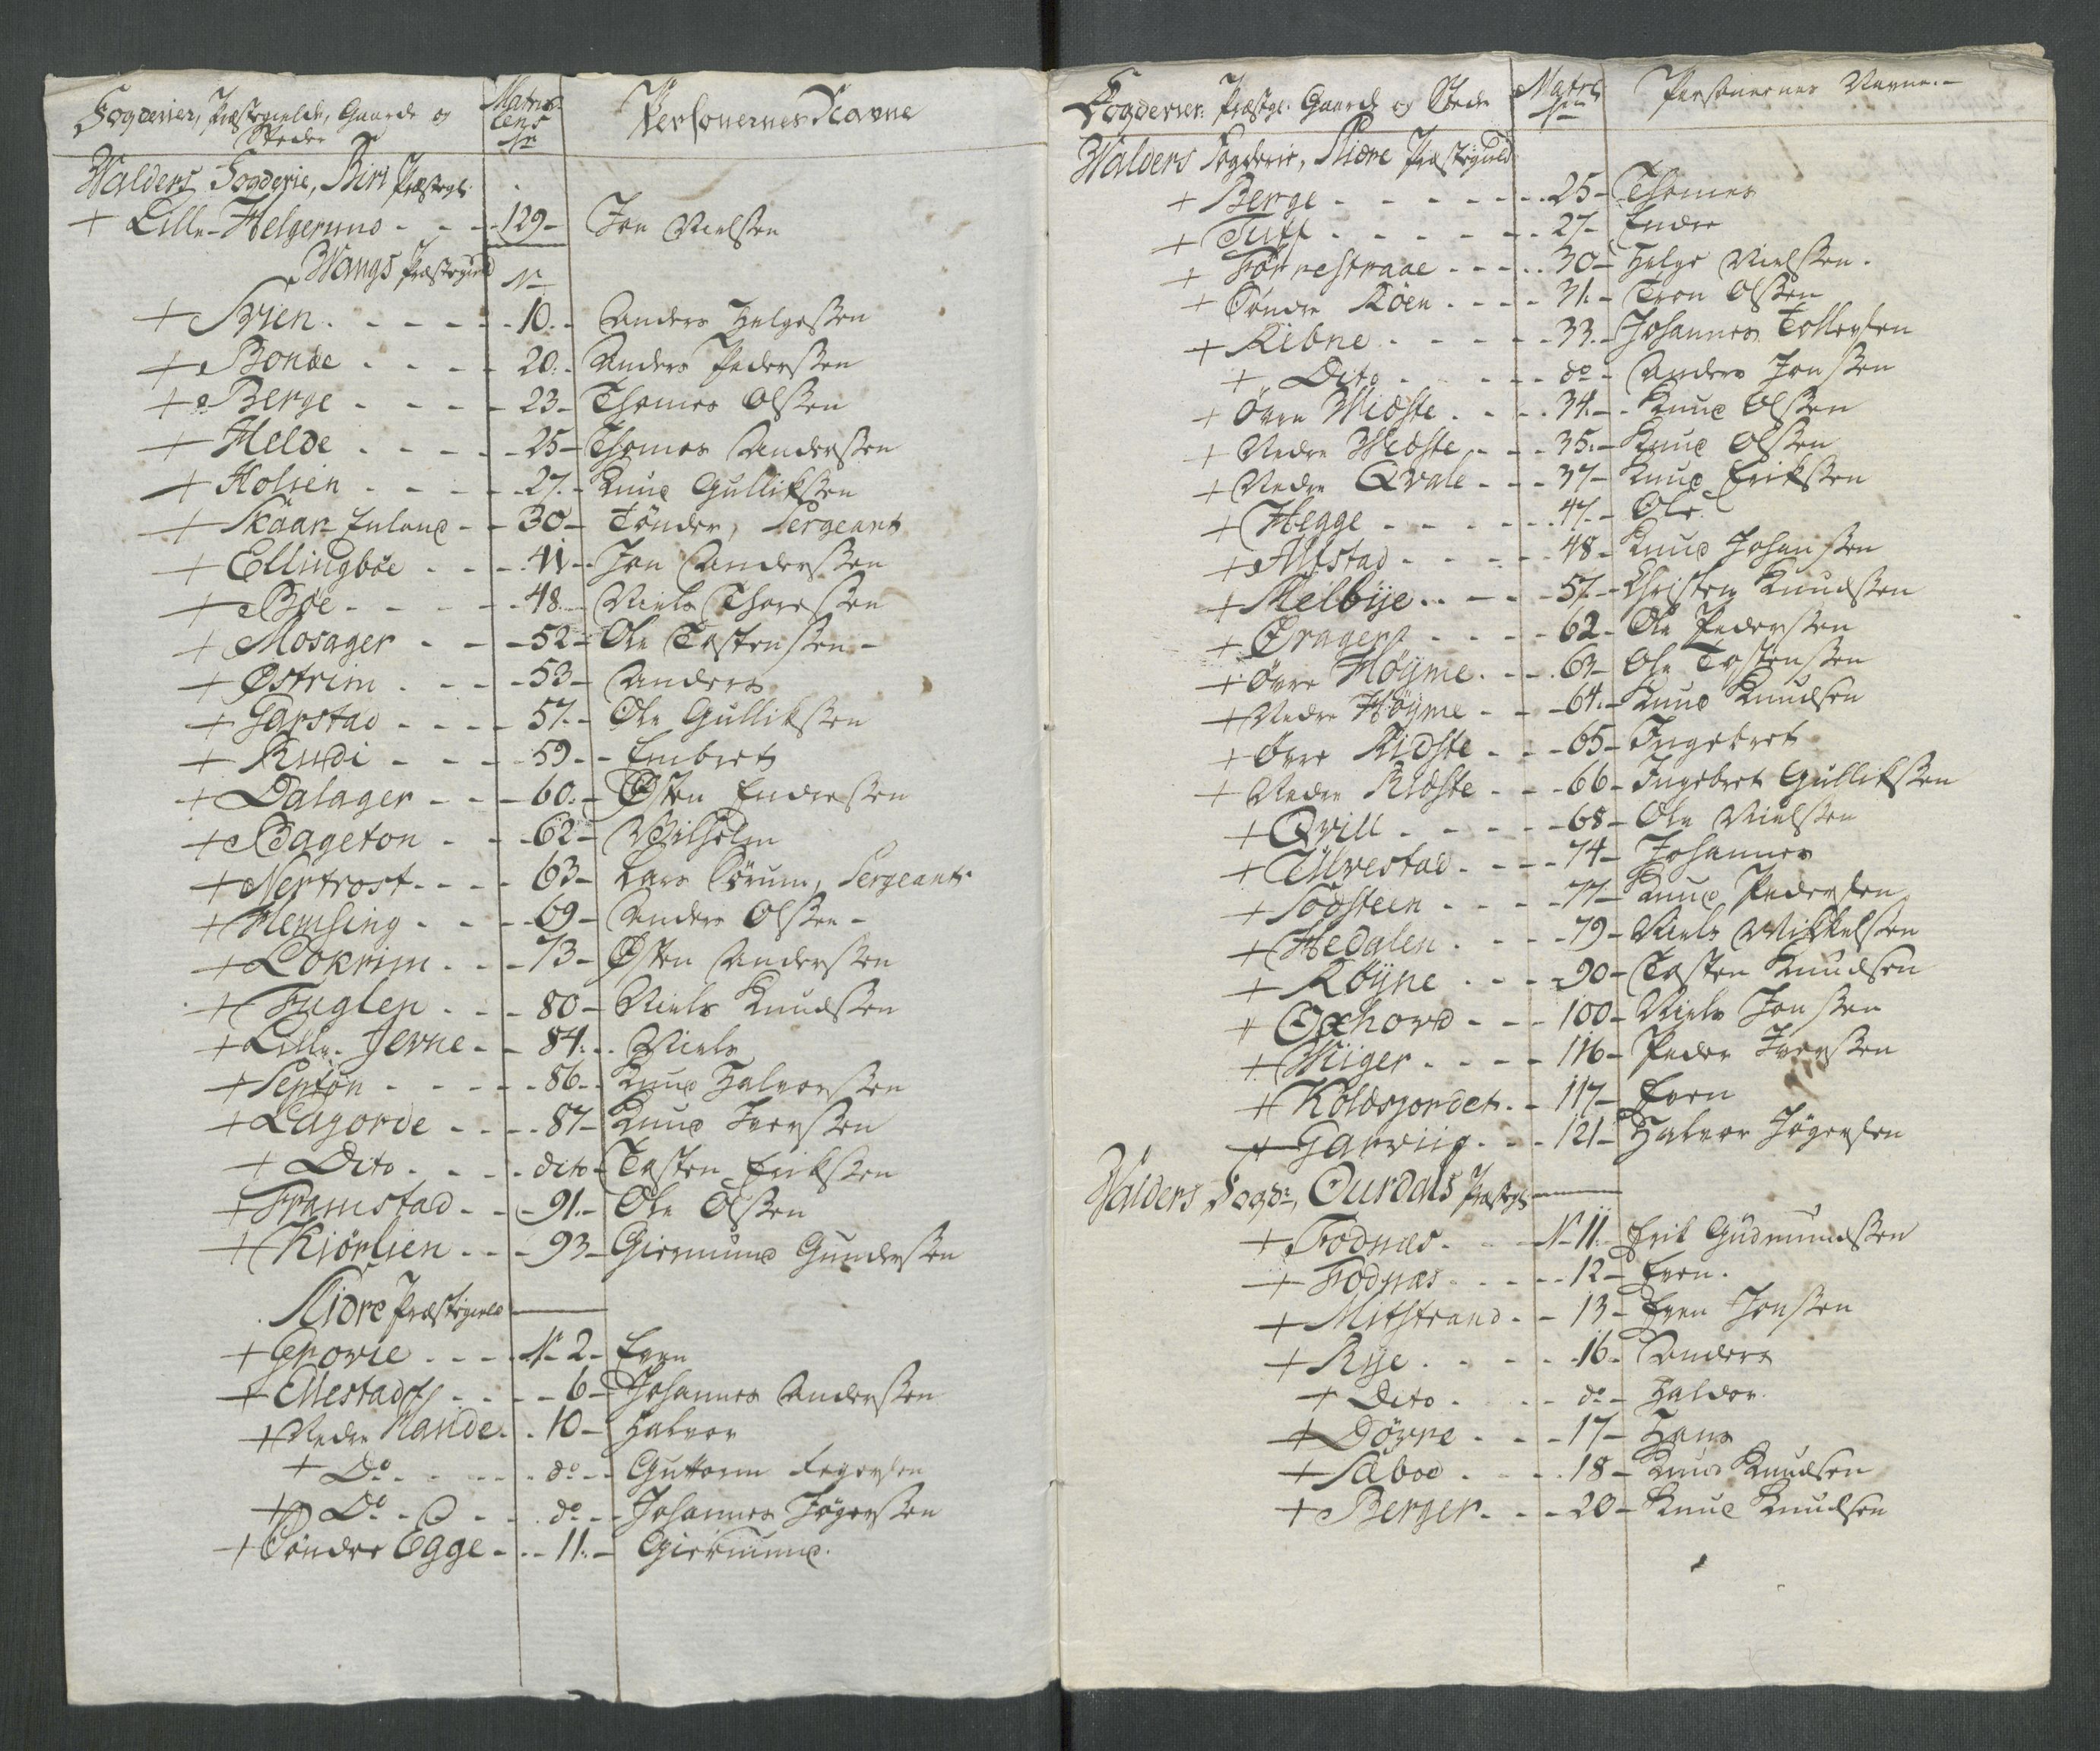 Fogderier, Præstegielde, Gaarde og
Steder
Matric
lens
No
Personernes Navne
Walders Fogderie, Biri Præstegl.
+ Lille Helgerums - - - 129 - Jon Nielsen
Wangs Præstegield No
+ Svien - - - - 10 - Anders Helgesen
+ Bonde - - - - 20 - Anders Pedersen
+ Berge - - - - 23 - Thomes Olsen
+ Helde - - - - 25 - Thomes Andersen
+ Holien - - - - 27 - Knud Gulliksen
+ Skaar - - 30 - Tønder, Sergeant
+ Ellingbøe - - - 41 - Jon Andersen
+ Bøe - - - - 48 - Niels Thoresen
+ Mosager - - - 52 - Ole Tostensen -
+ Østrim - - - 53 - Anders
+ Garstad - - - - 57 - Ole Gulliksen
+ Rudi - - - - 59 - Embret
+ Dalager - - - 60 - Østen Endresen
+ Bageton - - - 62 - Wilhelm
+ Nertrost - - - - 63 - Lars Sørum, Sergeant
+ Hemsing - - - 69 - Anders Olsen -
+ Løkrim - - - 73 - Østen Andersen
+ Fuglen - - - 80 - Niels Knudsen
+ Lille Jerne - - 84 - Niels
+ - - - - 86 - Knud Halvorsen
+ Lagorde - - - - 87 - Knud Iversen
+ Dito - - - - dito - Tosten Eriksen
+ Framstad - - - 91 - Ole Olsen
+ Kiørlien - - - 93 - Giermund Gundersen
Slidre Præstegield
+ Grovie - - - - No 2 - Even
+ - - - - 6 - Johannes Andersen
+ Nedre Hande - - 10 - Halvor
+ Do - - - - do - Guttorm
+ Do - - - - do - Johannes Jøgersen
+ Søndre Egge - - - 11 - Giermund.
Fogderier: Præstgl. Gaarde og Steder
Matrl
No
Personernes Navne. -
Walders Fogderie, Slidre Præstegield
+ Berge - - - - - - 25 - Thomes
+ Tuff - - - - - - 27 - Endre
+ Førrestraae - - - - 30 - Helge Nielsen.
+ Søndre Röen - - - - 31 - Tron Olsen
+ Rebne - - - - - 33 - Johannes Tollevsen
+ Dito - - - - - do - Anders Jonsen
+ Øvre Widste - - - 34 - Knud Olsen
+ Nedre Wedste - - - 35 - Knud Olsen
+ Nedre Qvale - - - 37 - Knud Eriksen
+ Hegge - - - - - 47 - Ole
+ Alfstad - - - - - 48 - Knud Johansen
+ Melbÿe - - - - 57 - Christen Knudsen
+ Dragers - - - - 62 - Ole Pedersen
+ Øvre Höyme - - - 63 - Ole Tostensen
+ Nedre Höyme - - - 64 - Knud Knudsen
+ Øvre Ridste - - - 65 - Ingebret
+ Nedre Ridste - - - 66 - Ingebret Gulliksen
+ Qvill - - - - - 68 - Ole Nielsen
+ Ulvestad - - - - 74 - Johannes
+ Todsteen - - - - 77 - Knud Pedersen
+ Hedalen - - - - 79 - Niels Mikkelsen
+ Röÿne - - - - 90 - Tosten Knudsen
+ Oxhovd - - - 100 - Niels Jonsen
+ Wiiger - - - - 116 - Peder Iversen
+ Koldsjordet - - 117 - Even
+ Garviig - - - 121 - Halvor Jøgersen
Walders Fogd:, Ourdals Præstegl.
+ Fodnæs - - - No 11 - Erik Gudmundsen
+ Fodnæs - - - - 12 - Even.
+ Mitstrand - - 13 - Even Jonsen
+ Rÿe - - - - - 16 - Anders
+ Dito - - - - do - Haldor.
+ Døvre - - - - 17 - Hans
+ Sæboe - - - - 18 - Knud Knudsen
+ Berger - - - 20 - Knud Knudsen